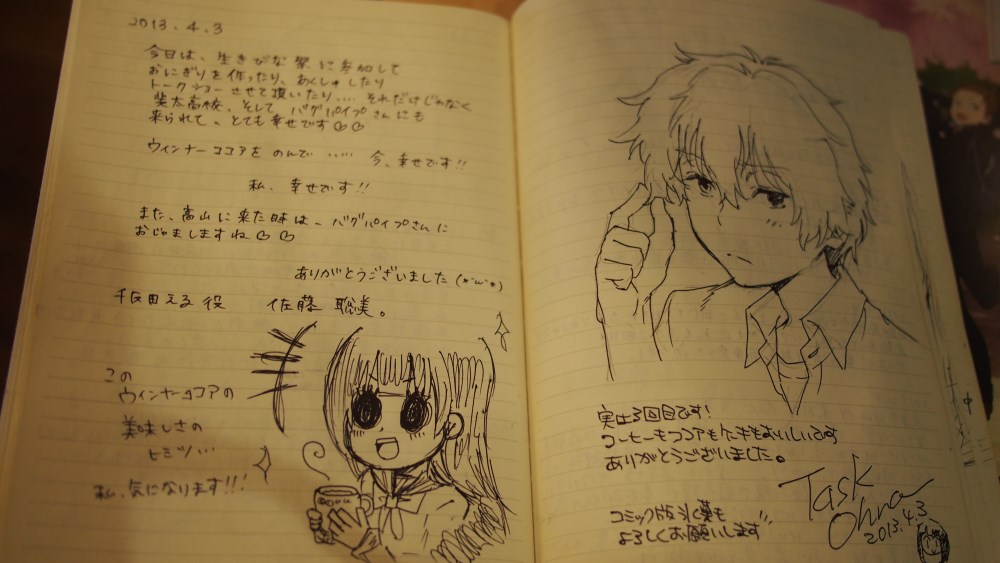 2013.4.3
今日は、生きびな祭に参加して
おにぎりを作ったり、あくしゅしたり
トークショーさせて頂いたり.... それだけじゃなく
斐太高校、そして バグパイプさんにも
来られて。とても幸せです♡♡
ウィンナーココアをのんで ..... 今、幸せです!!
私、幸せです!!
また、高山に来た時は、バグパイプさんに
おじゃましますね♡♡
ありがとうございました(*´ω`*)
千反田える役 佐藤 聡美。
この
ウィンナーココアの
美味しさの
ヒミツ...
私、気になります!!!
実は3回目です!
コーヒーもココアもケーキもおいしいです
ありがとうございました。
コミック版氷菓も
よろしくお願いします
Task
Ohna
2013.4.3